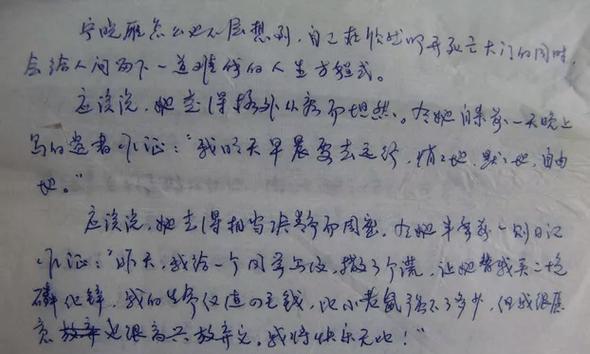 宁晓雁怎么也不会想到，自己在欣然叩开死亡大门的同时，
会给人间留下一道难解的人生方程式。
应该说，她走得格外从容而坦然。有她自杀前一天晚上
写的遗书作证：“我明天早晨要去远行，悄々地，默々地，自由
地。”
应该说，她走得相当决而周密。有她半年前一则日记
作证：“昨天，我给一个同学写信，撒了个谎，让她替我买二包
磷化锌，我的生命仅值四毛钱，比小老鼠强不了多少，但我很愿
意也很高兴放弃它。我将快乐无比！”